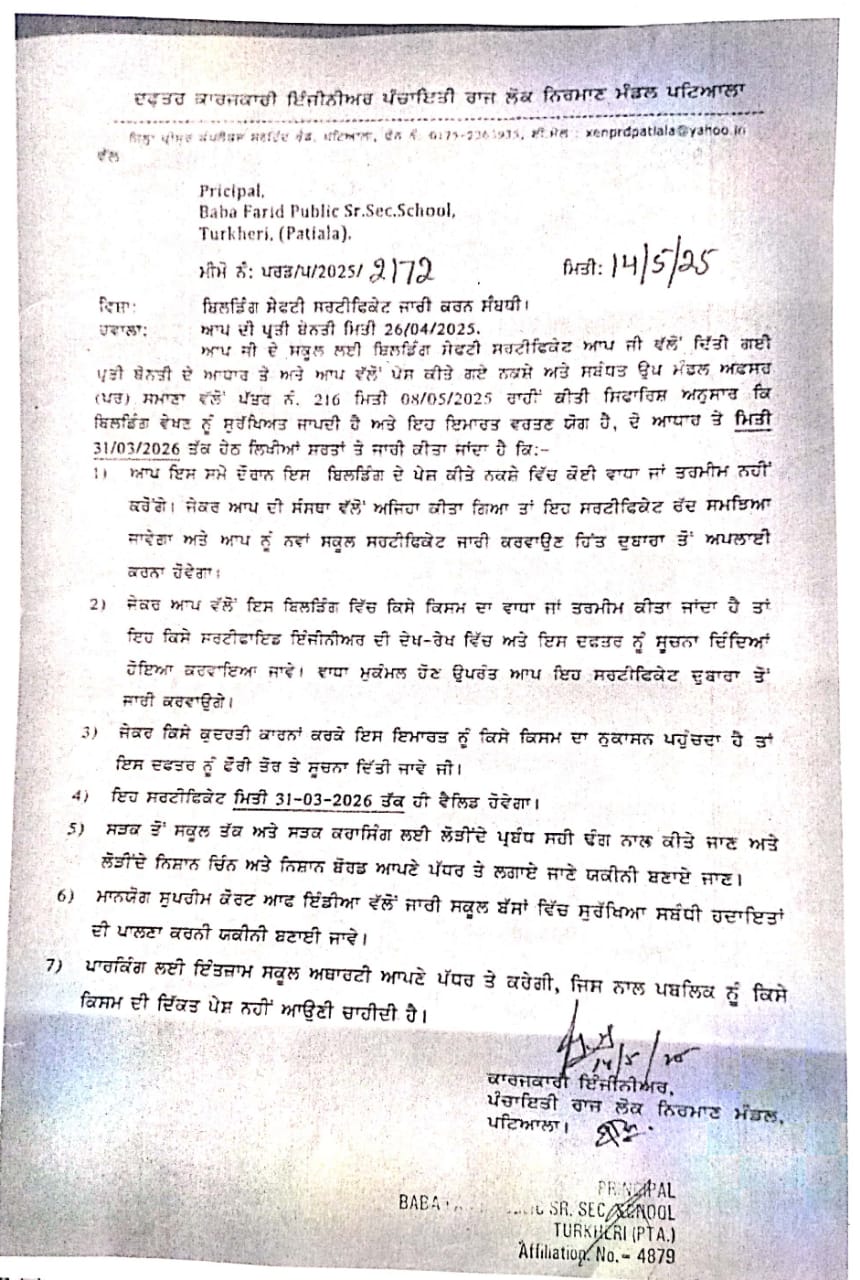 ਦਫਤਰ ਕਾਰਜਕਾਰੀ ਇੰਜੀਨੀਅਰ ਪੰਚਾਇਤੀ ਰਾਜ ਲੋਕ ਨਿਰਮਾਣ ਮੰਡਲ ਪਟਿਆਲਾ
ਰੋਡ, ਪਟਿਆਲਾ, ਫੋਨ ਨੰ. ਈ.ਮੇਲ : xenprdpatiala@yahoo.in
ਵੱਲ
Pricipal,
Baba Farid Public Sr.Sec.School,
Turkheri, (Patiala).
ਮੀਮੋ ਨੰ: ਪਰਡ/ਪ/2025/ 2172 ਮਿਤੀ: 14/5/25
ਵਿਸ਼ਾ: ਬਿਲਡਿੰਗ ਸੇਫਟੀ ਸਰਟੀਫਿਕੇਟ ਜਾਰੀ ਕਰਨ ਸੰਬਧੀ।
ਹਵਾਲਾ: ਆਪ ਦੀ ਪ੍ਰਤੀ ਬੇਨਤੀ ਮਿਤੀ 26/04/2025.
ਆਪ ਜੀ ਦੇ ਸਕੂਲ ਲਈ ਬਿਲਡਿੰਗ ਸੇਫਟੀ ਸਰਟੀਫਿਕੇਟ ਆਪ ਜੀ ਵੱਲੋਂ ਦਿੱਤੀ ਗਈ
ਪ੍ਰਤੀ ਬੇਨਤੀ ਦੇ ਆਧਾਰ ਤੇ ਅਤੇ ਆਪ ਵੱਲੋਂ ਪੇਸ ਕੀਤੇ ਗਏ ਨਕਸ਼ੇ ਅਤੇ ਸਬੰਧਤ ਉਪ ਮੰਡਲ ਅਫਸਰ
(ਪਰ) ਸਮਾਣਾ ਵੱਲੋਂ ਪੱਤਰ ਨੰ. 216 ਮਿਤੀ 08/05/2025 ਰਾਹੀਂ ਕੀਤੀ ਸਿਫਾਰਿਸ਼ ਅਨੁਸਾਰ ਕਿ
ਬਿਲਡਿੰਗ ਵੇਖਣ ਨੂੰ ਸੁਰੱਖਿਅਤ ਜਾਪਦੀ ਹੈ ਅਤੇ ਇਹ ਇਮਾਰਤ ਵਰਤਣ ਯੋਗ ਹੈ, ਦੇ ਆਧਾਰ ਤੇ ਮਿਤੀ
31/03/2026 ਤੱਕ ਹੇਠ ਲਿਖੀਆਂ ਸਰਤਾਂ ਤੇ ਜਾਰੀ ਕੀਤਾ ਜਾਂਦਾ ਹੈ ਕਿ:-
1) ਆਪ ਇਸ ਸਮੇ ਦੌਰਾਨ ਇਸ ਬਿਲਡਿੰਗ ਦੇ ਪੇਸ਼ ਕੀਤੇ ਨਕਸ਼ੇ ਵਿੱਚ ਕੋਈ ਵਾਧਾ ਜਾਂ ਤਰਮੀਮ ਨਹੀਂ
ਕਰੋਂਗੇ। ਜੇਕਰ ਆਪ ਦੀ ਸੰਸਥਾ ਵੱਲੋਂ ਅਜਿਹਾ ਕੀਤਾ ਗਿਆ ਤਾਂ ਇਹ ਸਰਟੀਫਿਕੇਟ ਰੱਦ ਸਮਝਿਆ
ਜਾਵੇਗਾ ਅਤੇ ਆਪ ਨੂੰ ਨਵਾਂ ਸਕੂਲ ਸਰਟੀਫਿਕੇਟ ਜਾਰੀ ਕਰਵਾਉਣ ਹਿੱਤ ਦੁਬਾਰਾ ਤੋਂ ਅਪਲਾਈ
ਕਰਨਾ ਹੋਵੇਗਾ।
2) ਜੇਕਰ ਆਪ ਵੱਲੋਂ ਇਸ ਬਿਲਡਿੰਗ ਵਿੱਚ ਕਿਸੇ ਕਿਸਮ ਦਾ ਵਾਧਾ ਜਾਂ ਤਰਮੀਮ ਕੀਤਾ ਜਾਂਦਾ ਹੈ ਤਾਂ
ਇਹ ਕਿਸੇ ਸਰਟੀਫਾਇਡ ਇੰਜੀਨੀਅਰ ਦੀ ਦੇਖ-ਰੇਖ ਵਿੱਚ ਅਤੇ ਇਸ ਦਫਤਰ ਨੂੰ ਸੂਚਨਾ ਦਿੰਦਿਆਂ
ਹੋਇਆ ਕਰਵਾਇਆ ਜਾਵੇ। ਵਾਧਾ ਮੁਕੰਮਲ ਹੋਣ ਉਪਰੰਤ ਆਪ ਇਹ ਸਰਟੀਫਿਕੇਟ ਦੁਬਾਰਾ ਤੋਂ
ਜਾਰੀ ਕਰਵਾਉਗੇ।
3) ਜੇਕਰ ਕਿਸੇ ਕੁਦਰਤੀ ਕਾਰਨਾਂ ਕਰਕੇ ਇਸ ਇਮਾਰਤ ਨੂੰ ਕਿਸੇ ਕਿਸਮ ਦਾ ਨੁਕਾਸਨ ਪਹੁੰਚਦਾ ਹੈ ਤਾਂ
ਇਸ ਦਫਤਰ ਨੂੰ ਫੌਰੀ ਤੋਰ ਤੇ ਸੂਚਨਾ ਦਿੱਤੀ ਜਾਵੇ ਜੀ।
4) ਇਹ ਸਰਟੀਫਿਕੇਟ ਮਿਤੀ 31-03-2026 ਤੱਕ ਹੀ ਵੈਲਿਡ ਹੋਵੇਗਾ।
5) ਸੜਕ ਤੋਂ ਸਕੂਲ ਤੱਕ ਅਤੇ ਸੜਕ ਕਰਾਸਿੰਗ ਲਈ ਲੋੜੀਂਦੇ ਪ੍ਰਬੰਧ ਸਹੀ ਢੰਗ ਨਾਲ ਕੀਤੇ ਜਾਣ ਅਤੇ
ਲੋੜੀਂਦੇ ਨਿਸ਼ਾਨ ਚਿੰਨ ਅਤੇ ਨਿਸ਼ਾਨ ਬੋਰਡ ਆਪਣੇ ਪੱਧਰ ਤੇ ਲਗਾਏ ਜਾਣੇ ਯਕੀਨੀ ਬਣਾਏ ਜਾਣ।
6) ਮਾਨਯੋਗ ਸੁਪਰੀਮ ਕੋਰਟ ਆਫ ਇੰਡੀਆ ਵੱਲੋਂ ਜਾਰੀ ਸਕੂਲ ਬੱਸਾਂ ਵਿੱਚ ਸੁਰੱਖਿਆ ਸਬੰਧੀ ਹਦਾਇਤਾਂ
ਦੀ ਪਾਲਣਾ ਕਰਨੀ ਯਕੀਨੀ ਬਣਾਈ ਜਾਵੇ।
7) ਪਾਰਕਿੰਗ ਲਈ ਇੰਤਜ਼ਾਮ ਸਕੂਲ ਅਥਾਰਟੀ ਆਪਣੇ ਪੱਧਰ ਤੇ ਕਰੇਗੀ, ਜਿਸ ਨਾਲ ਪਬਲਿਕ ਨੂੰ ਕਿਸੇ
ਕਿਸਮ ਦੀ ਦਿੱਕਤ ਪੇਸ਼ ਨਹੀਂ ਆਉਣੀ ਚਾਹੀਦੀ ਹੈ।
14/5/25
ਕਾਰਜਕਾਰੀ ਇੰਜੀਨੀਅਰ,
ਪੰਚਾਇਤੀ ਰਾਜ ਲੋਕ ਨਿਰਮਾਣ ਮੰਡਲ,
ਪਟਿਆਲਾ।
PRINCIPAL
BABA SR. SEC. SCHOOL
TURKHERI (PTA.)
Affiliation. No.- 4879